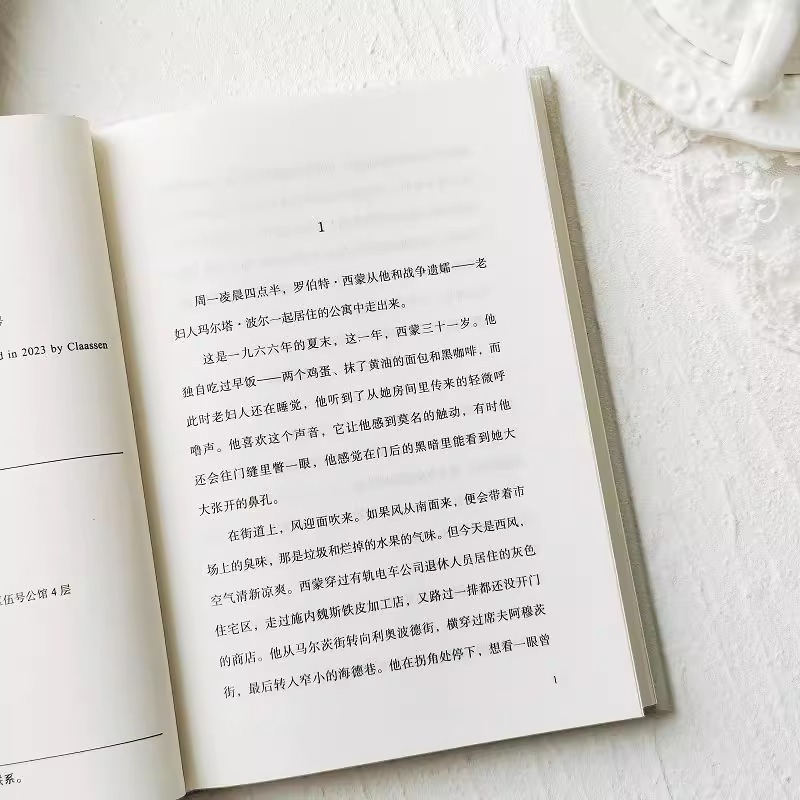 d in 2023 by Claassen
伍号公馆 4 层
系。
1
周一凌晨四点半，罗伯特·西蒙从他和战争遗孀——老
妇人玛尔塔·波尔一起居住的公寓中走出来。
这是一九六六年的夏末，这一年，西蒙三十一岁。他
独自吃过早饭——两个鸡蛋、抹了黄油的面包和黑咖啡，而
此时老妇人还在睡觉，他听到了从她房间里传来的轻微呼
噜声。他喜欢这个声音，它让他感到莫名的触动，有时他
还会往门缝里瞥一眼，他感觉在门后的黑暗里能看到她大
大张开的鼻孔。
在街道上，风迎面吹来。如果风从南面来，便会带着市
场上的臭味，那是垃圾和烂掉的水果的气味。但今天是西风，
空气清新凉爽。西蒙穿过有轨电车公司退休人员居住的灰色
住宅区，走过施内魏斯铁皮加工店，又路过一排都还没开门
的商店。他从马尔茨街转向利奥波德街，横穿过席夫阿穆茨
街，最后转入窄小的海德巷。他在拐角处停下，想看一眼曾
1